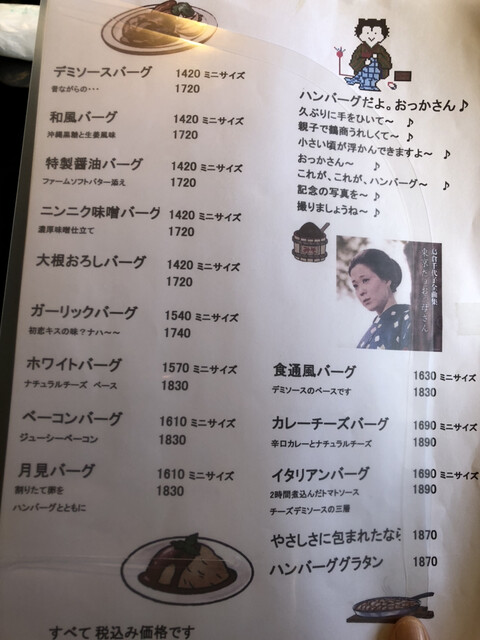 デミソースバーグ 1420 ミニサイズ
昔ながらの・・・ 1720
和風バーグ 1420 ミニサイズ
沖縄黒糖と生姜風味 1720
特製醤油バーグ 1420 ミニサイズ
ファームソフトバター添え 1720
ニンニク味噌バーグ 1420 ミニサイズ
濃厚味噌仕立て 1720
大根おろしバーグ 1420 ミニサイズ
1720
ガーリックバーグ 1540 ミニサイズ
初恋キスの味？ナハ～～ 1740
ホワイトバーグ 1570 ミニサイズ
ナチュラルチーズ ベース 1830
ベーコンバーグ 1610 ミニサイズ
ジューシーベーコン 1830
月見バーグ 1610 ミニサイズ
割りたて卵を 1830
ハンバーグとともに
すべて 税込み価格です
ハンバーグだよ。おっかさん♪
久ぶりに手をひいて～ ♪
親子で鶴商うれしくて～ ♪
小さい頃が浮かんできますよ～ ♪
おっかさん～ ♪
これが、これが、ハンバーグ～ ♪
記念の写真を～ ♪
撮りましょうね～ ♪
千代子全曲集
東京だョお母さん
食通風バーグ 1630 ミニサイズ
デミソースのベースです 1830
カレーチーズバーグ 1690 ミニサイズ
辛口カレーとナチュラルチーズ 1890
イタリアンバーグ 1690 ミニサイズ
2時間煮込んだトマトソース 1890
チーズデミソースの三層
やさしさに包まれたなら 1870
ハンバーググラタン 1870